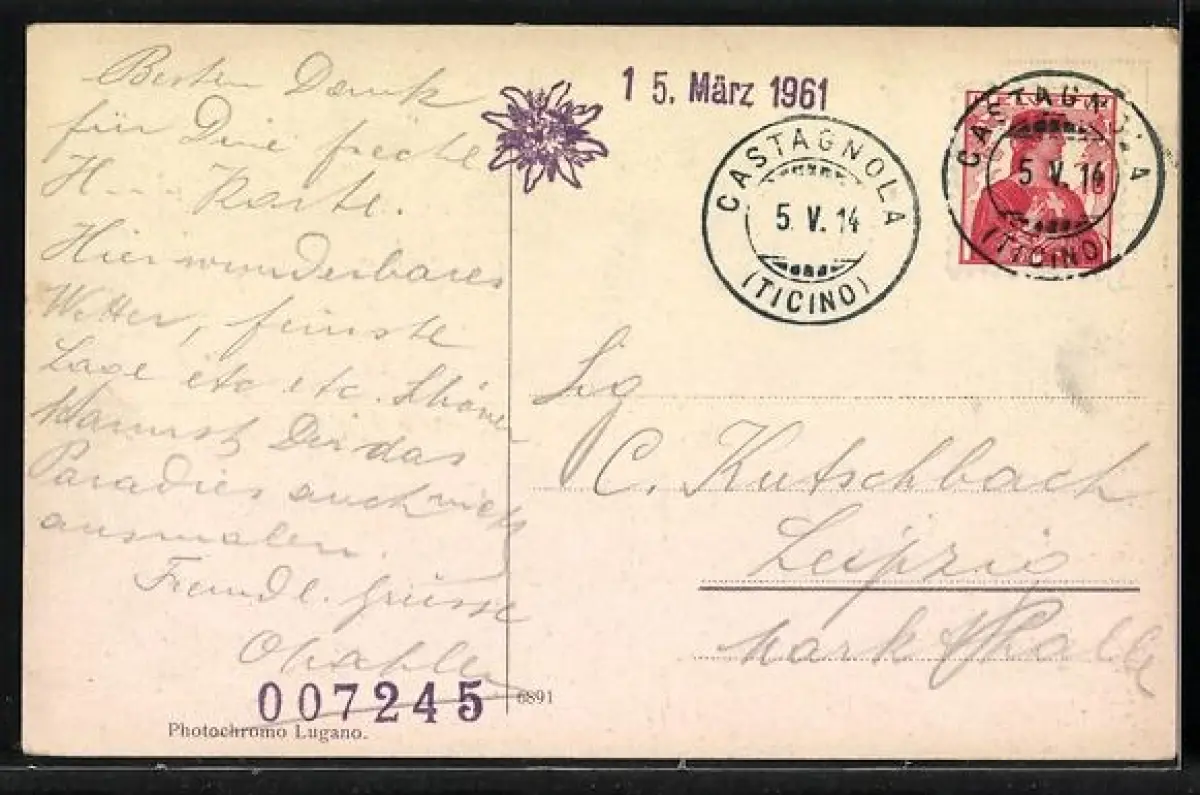 Besten Dank
für Deine freche
H... Karte.
Hier wunderbares
Wetter, feinste
Lage etc etc. Schöner
kannst Dir das
Paradies auch nicht
ausmalen.
Freundl. Grüsse
007245
Photochromo Lugano.
6891
15. März 1961
CASTAGNOLA
5. V. 14
(TICINO)
CASTAGNOLA
5 V. 14
(TICINO)
HELVETIA
C. Kutschbach
Leipzig
Markthalle